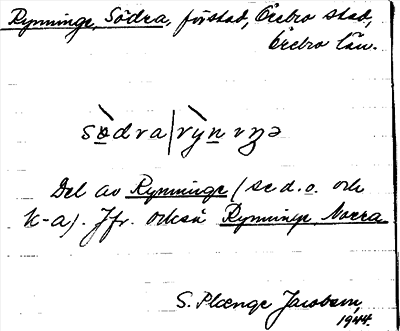 Rynninge, Södra, förstad, Örebro stad,
Örebro län.
sö̀dra|rỳnıŋə
Del av Rynninge (se d.o. och
k-a). Jfr. också Rynninge, Norra
S. Plænge Jacobson,
1944.